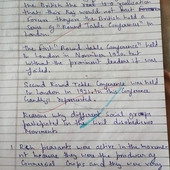 the British the rest is a publication
that there they would not but
forum therefore the British held a
series of "Round Table Conference" in
London.
The first "Round Table Conference" held
in London in November 1930. but
without the prominent leaders it was
failed.
Second Round Table Conference was held
in London in 1931. In this Conference
Gandhiji represented.
Reasons why different social groups
participated in the civil disobedience
Movement.
1. Rich peasants were active in the movem
nt because they were the producer of
Commercial Crops and they were very